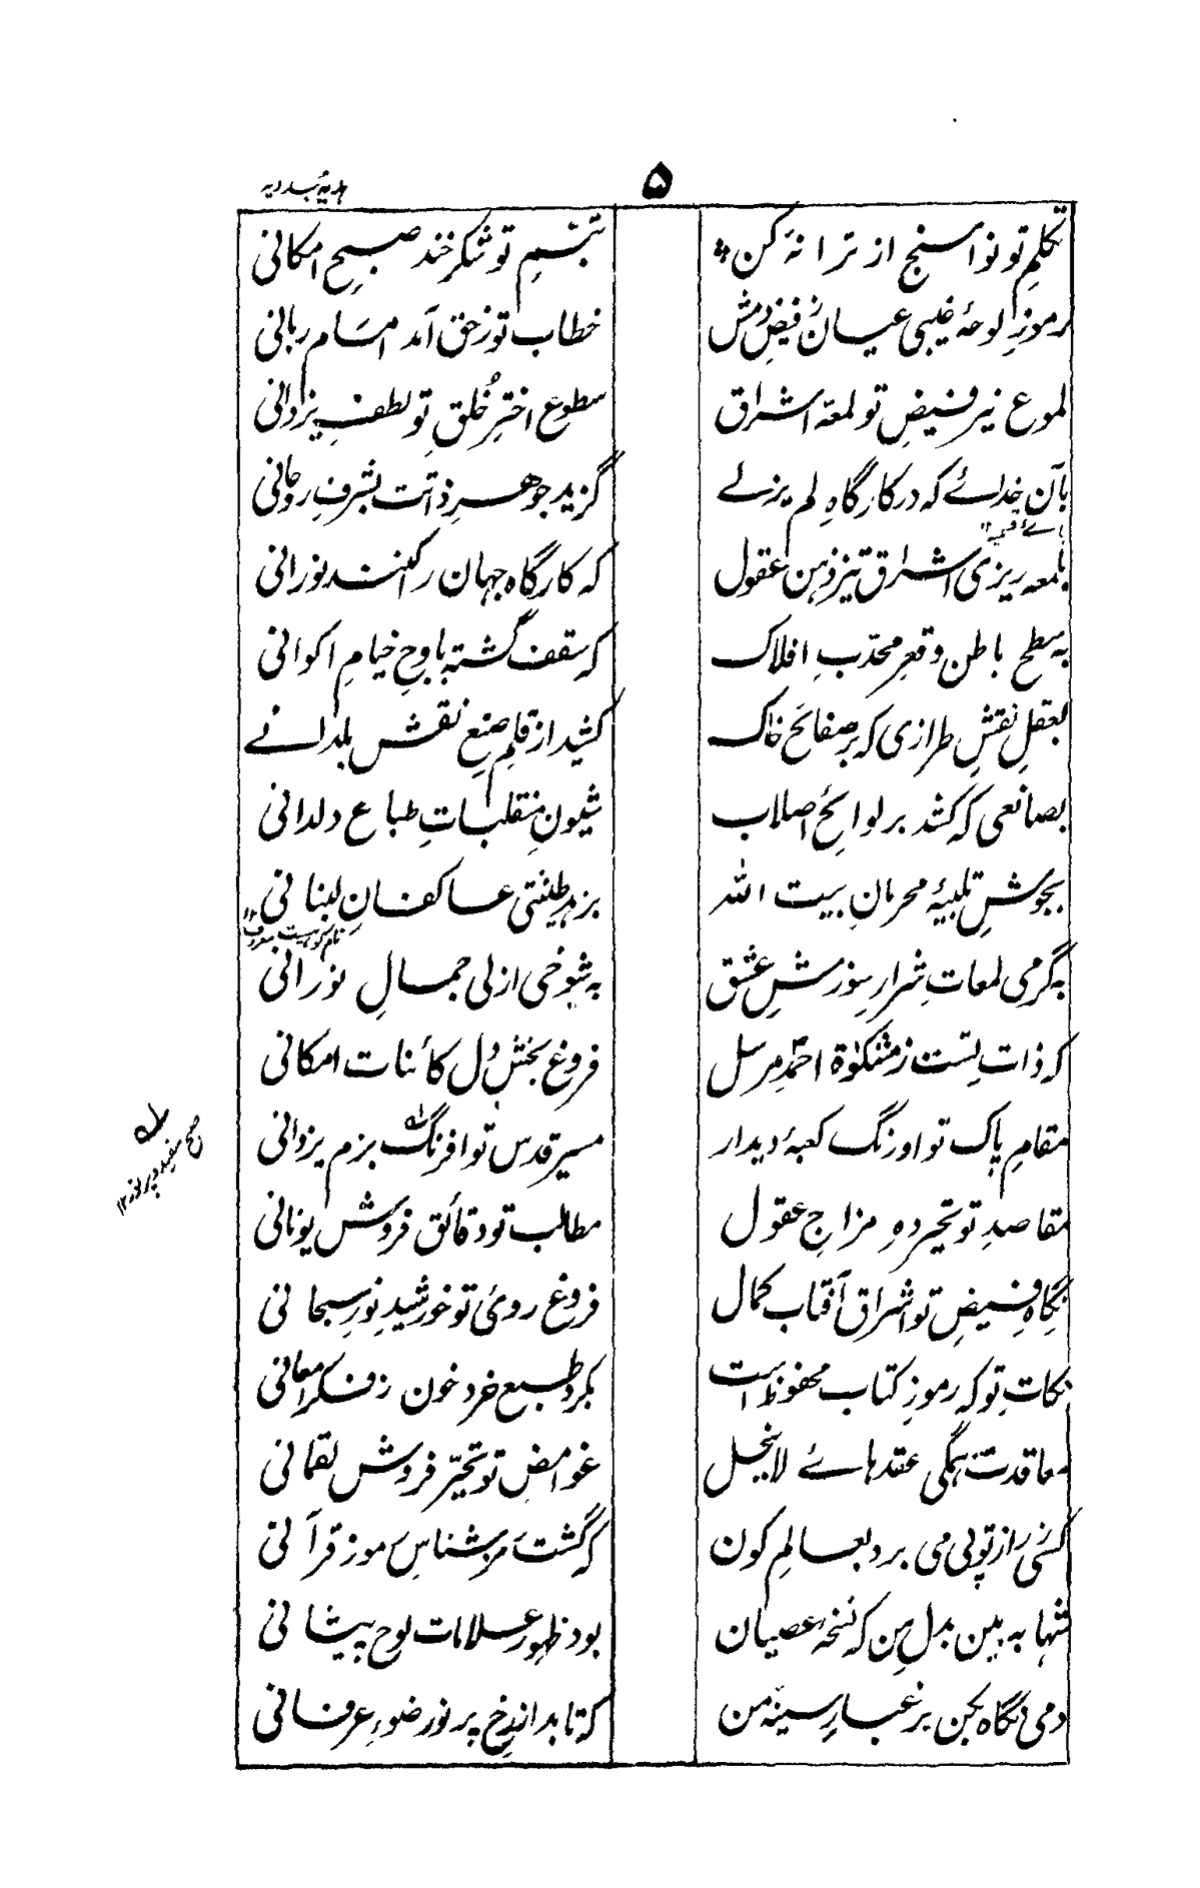 ۵
ہدیۂ بدریہ
تکلمِ تو نوا سنج از ترانۂ کن تبسّمِ تو شکر خند صبحِ امکانی
رموزِ لوحۂ غیبی عیان ز فیضِ دمش خطاب تو ز حق آمد امام ربانی
لموع نیر فیضِ تو لمعۂ اشراق سطوع اخترِ خُلقِ تو لطفِ یزدانی
بآن خدائے کہ در کارگاہِ لم یزلے گزید جوهرِ ذاتت بشرفِ روحانی
بلمعہ ریزی اشراق تیز ذہن عقول کہ کارگاہ جہان را کنند نورانی
بہ سطح باطن و قعرِ محدّبِ افلاک کہ سقف گشتہ باوجِ خیامِ اکوانی
بعقلِ نقشِ طرازی کہ بر صفائحِ خاک کشید از قلمِ صنعِ نقش بلدانے
بصانعی کہ کشد بر لوائحِ اصلاب شیونِ منقلباتِ طباع ولدانی
بجوشِ تلبیۂ محرمانِ بیت اللہ بزہد طینتی عاکفانِ لبنانی
بہ گرمی لمعاتِ شرارِ سوزشِ عشق بہ شوخی ازلی جمالِ نورانی
کہ ذات تست ز مشکوٰۃ احمدِ مرسل فروغ بخشِ دل کائنات امکانی
مقامِ پاک تو اورنگ کعبۂ دیدار مسیر قدس تو افرنگ بزم یزدانی
مقاصدِ تو تحیر دہِ مزاجِ عقول مطالب تو دقائق فروش یونانی
نگاہِ فیضِ تو اشراق آفتاب کمال فروغ روئ تو خورشیدِ نورِ سبحانی
نکاتِ تو کہ رموزِ کتاب محفوظ است بکرد طبع خرد خون ز فکر امعانی
معاقدت ہمگی عقدہائے لاینحل غوامضِ تو تحیّر فروش لقمانی
کسی ز راز تو پی می برد بعالمِ کون کہ گشت رمز شناسِ رموز قرآنی
شہا بہ بین بدلِ من کہ نسخۂ عصیان بود ظہور علامات لوح پیشانی
دمی نگاہ بکن بر غبارِ سینۂ من کہ تابد از رخِ پر نور ضوءِ عرفانی
صبح سفید و پر نور ۱۲